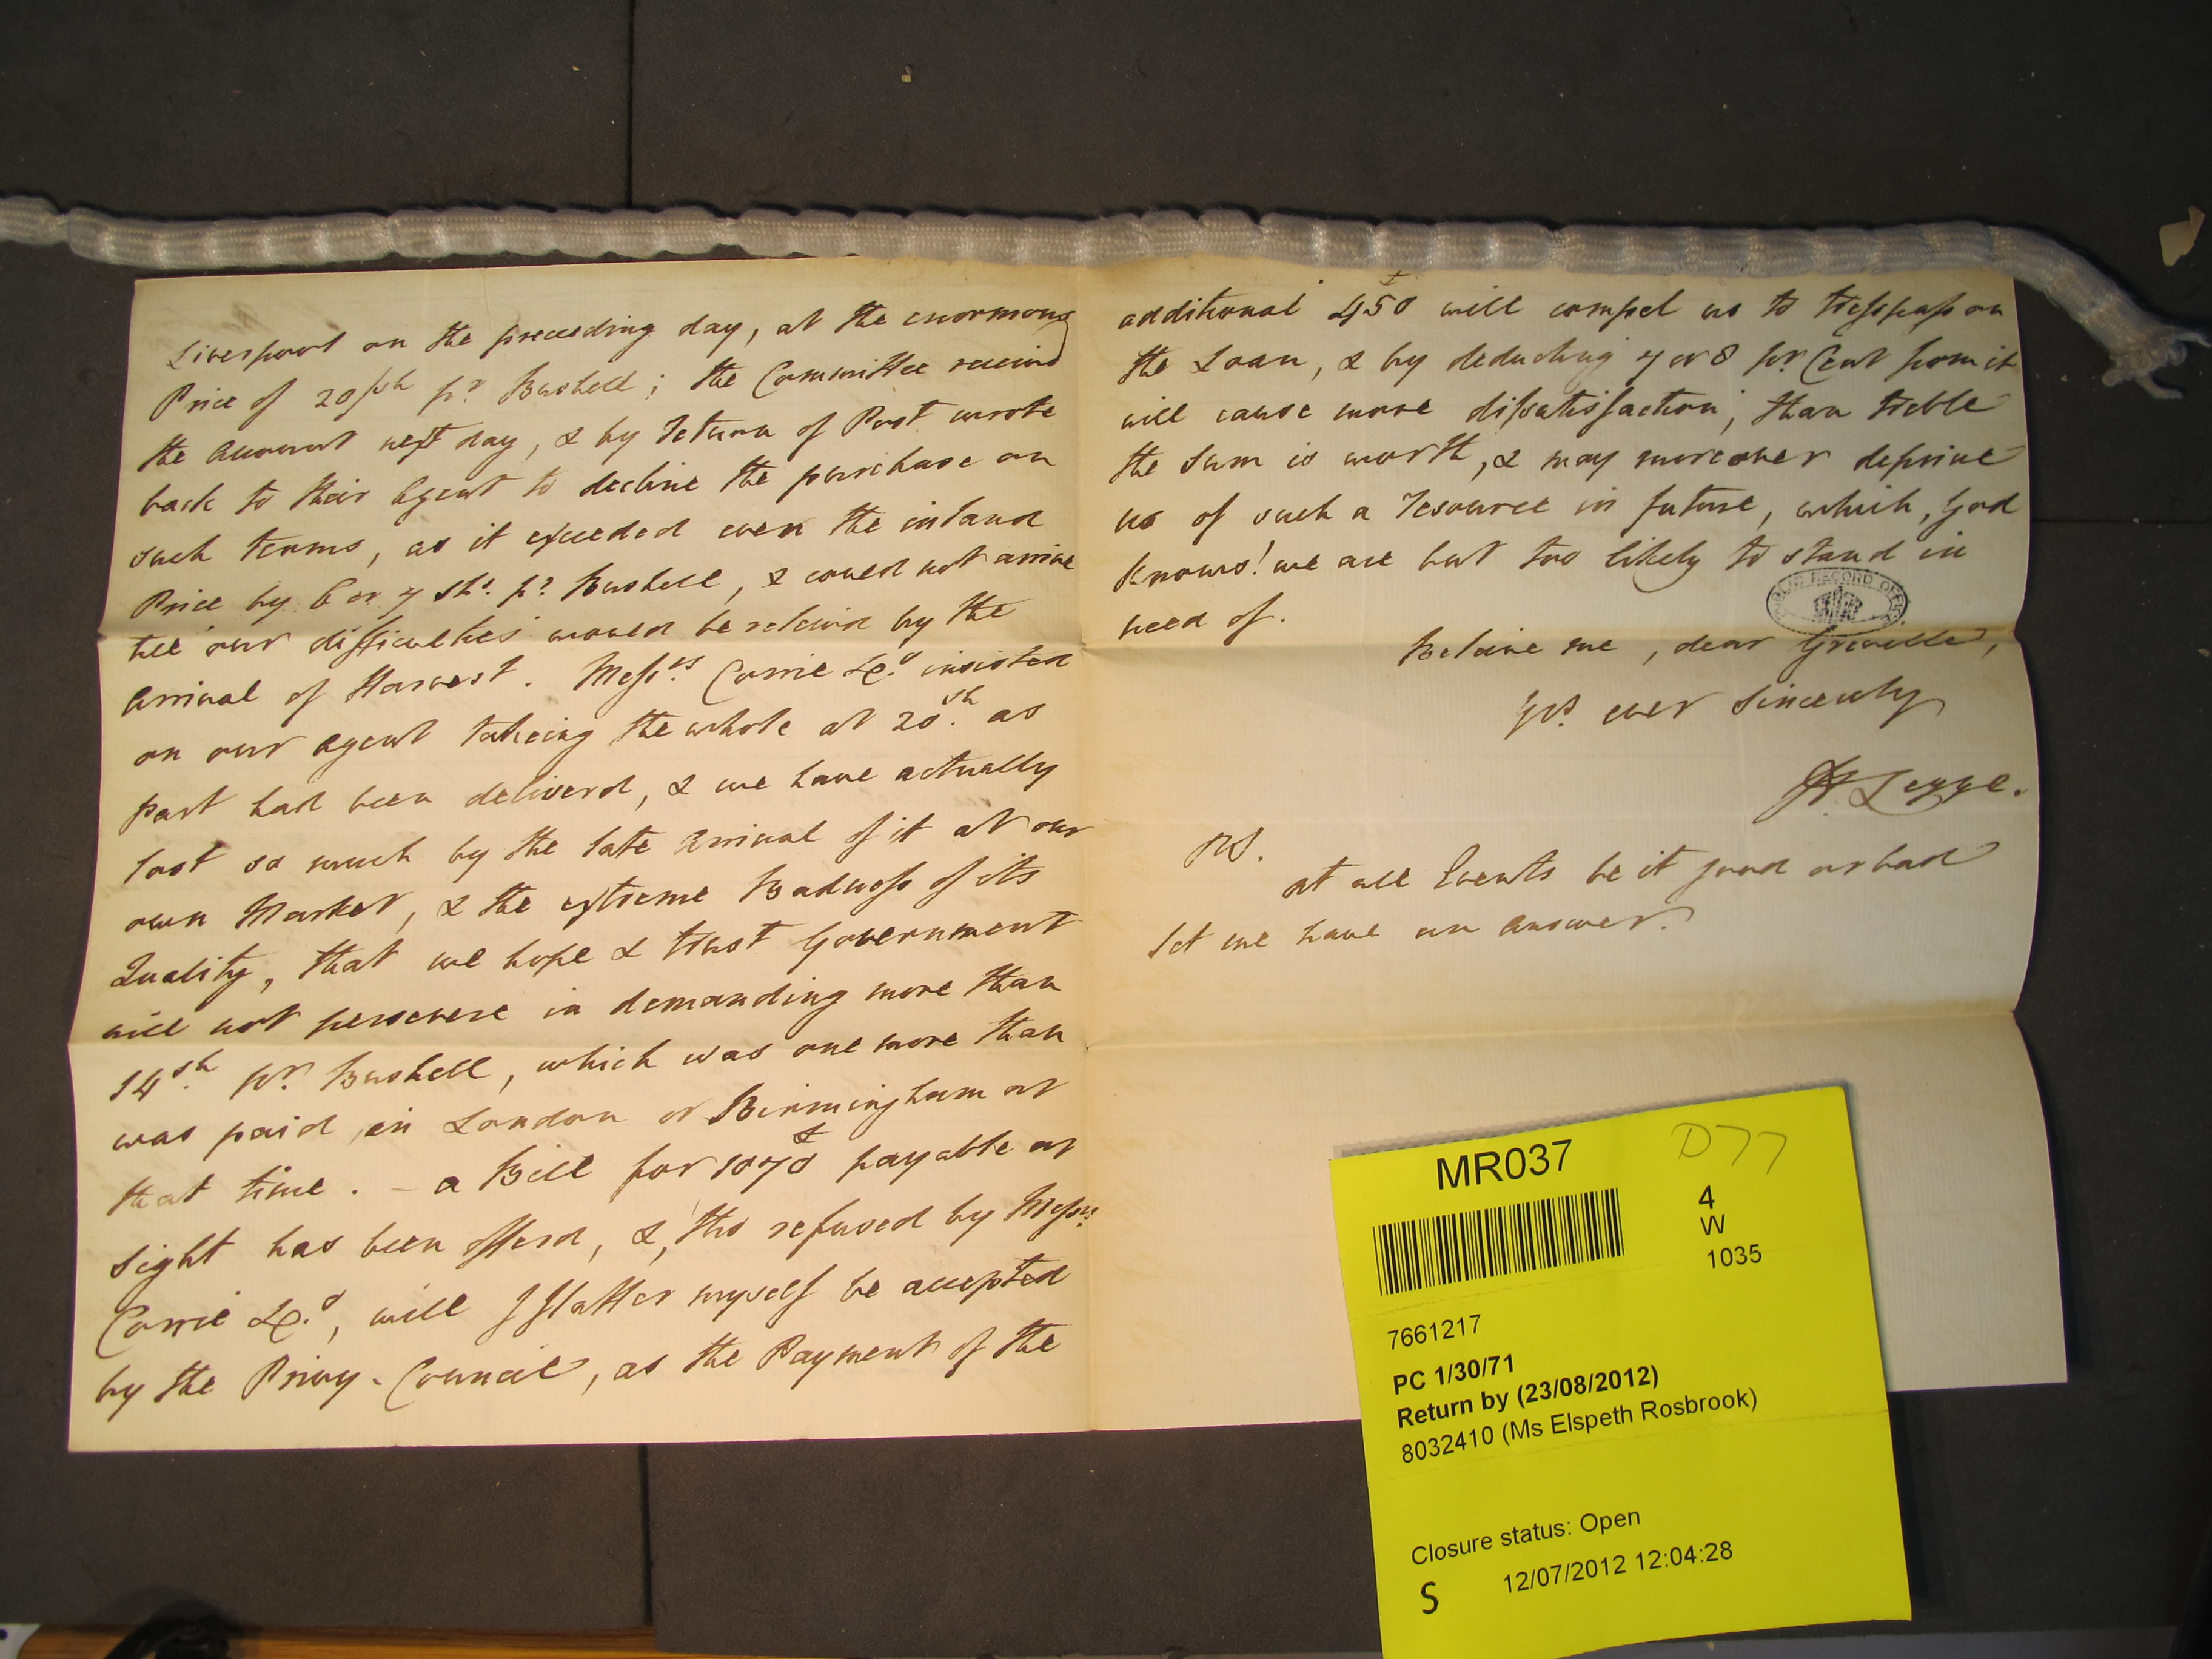 Liverpool on the preceeding day, at the enormous
Price of 20/sh pr. Bushell; the Committee receivd
the account next day, & by return of Post wrote
back to their Agent to decline the purchase on
such terms, as it exceeded even the inland
Price by 6 or 7 shs. pr. Bushell, & coued not arrive
till our difficulties woued be releivd by the
arrival of Harvest. Messrs. Corrie & Co. insisted
on our agent takeing the whole at 20sh. as
part had been deliverd, & we have actually
lost so much by the late arrival of it at our
own Market, & the extreme Badness of its
Quality, that we hope & trust Government
will not persevere in demanding more than
14sh. pr. Bushell, which was one more than
was paid in London or Birmingham at
that time. – a Bill for 1070£ payable at
sight has been offerd, &, tho refused by Messrs.
Corrie & Co., will I flatter myself be accepted
by the Privy-Council, as the Payment of the
additional 450£ will compel us to tresspass on
the Loan, & by deducting 7 or 8 pr. Cent from it
will cause more dissatisfaction, than treble
the sum is worth, & may moreover deprive
us of such a resource in future, which, God
knows! we are but too likely to stand in
need of.
PUBLIC RECORD OFFICE
Beleive me, dear Greville,
Yrs. ever sincerely
H Legge.
PS.
at all Events be it good or bad
let me have an answer.
MR037
D77
4
W
1035
7661217
PC 1/30/71
Return by (23/08/2012)
8032410 (Ms Elspeth Rosbrook)
Closure status: Open
S 12/07/2012 12:04:28